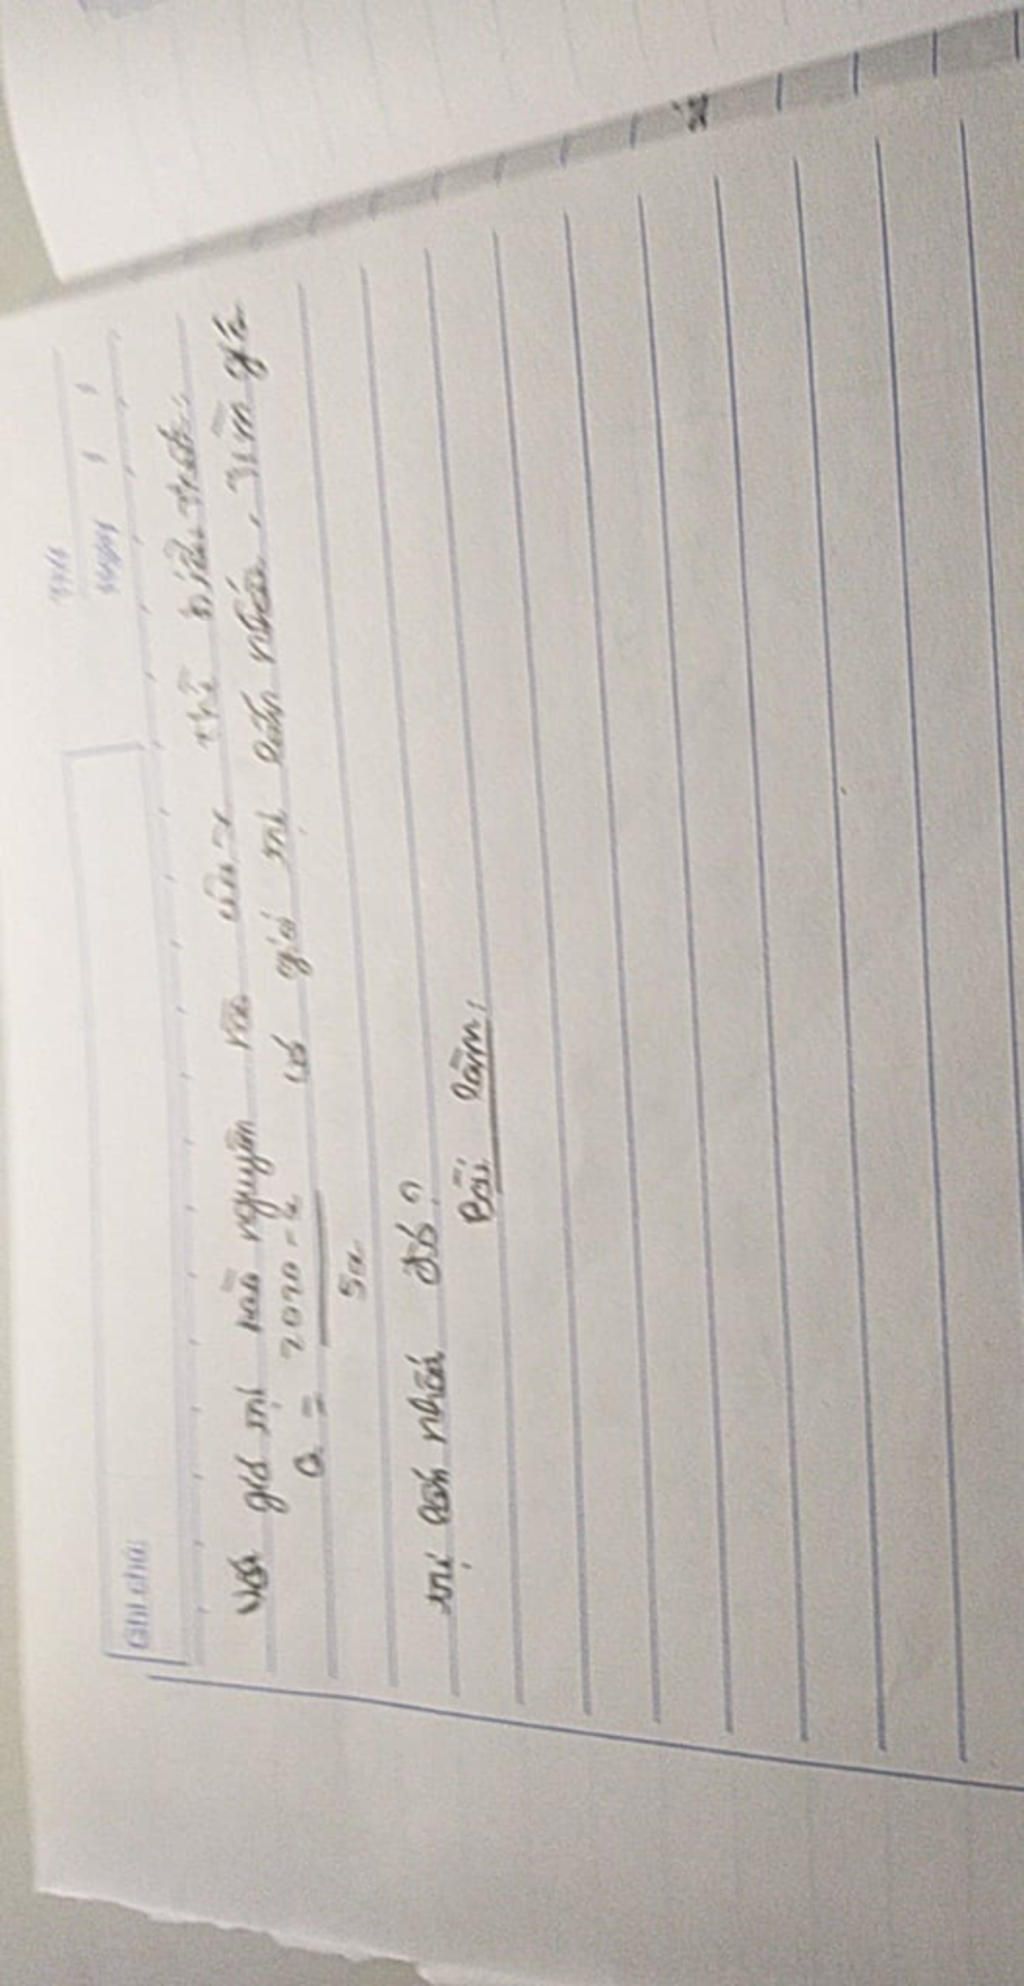 Ghi chú:
Thứ
Ngày / /
Với giá trị nào nguyên nào của x thì biểu thức
Q = 2020 - x có giá trị lớn nhất. Tìm giá
5x
trị lớn nhất đó?
Bài làm: